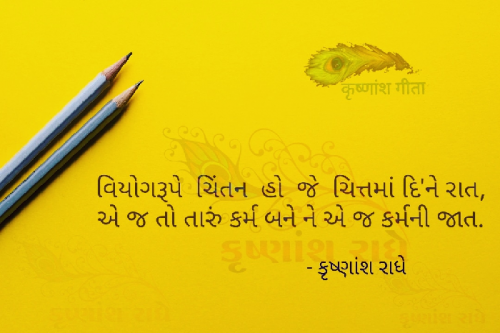 कृष्णांश गीता
વિયોગરૂપે ચિંતન હો જે ચિત્તમાં દિ'ને રાત,
એ જ તો તારું કર્મ બને ને એ જ કર્મની જાત.
કૃષ્ણાંશ રાધે
- કૃષ્ણાંશ રાધે
કૃષ્ણાંશ રાધે
કૃષ્ણાંશ રાધે